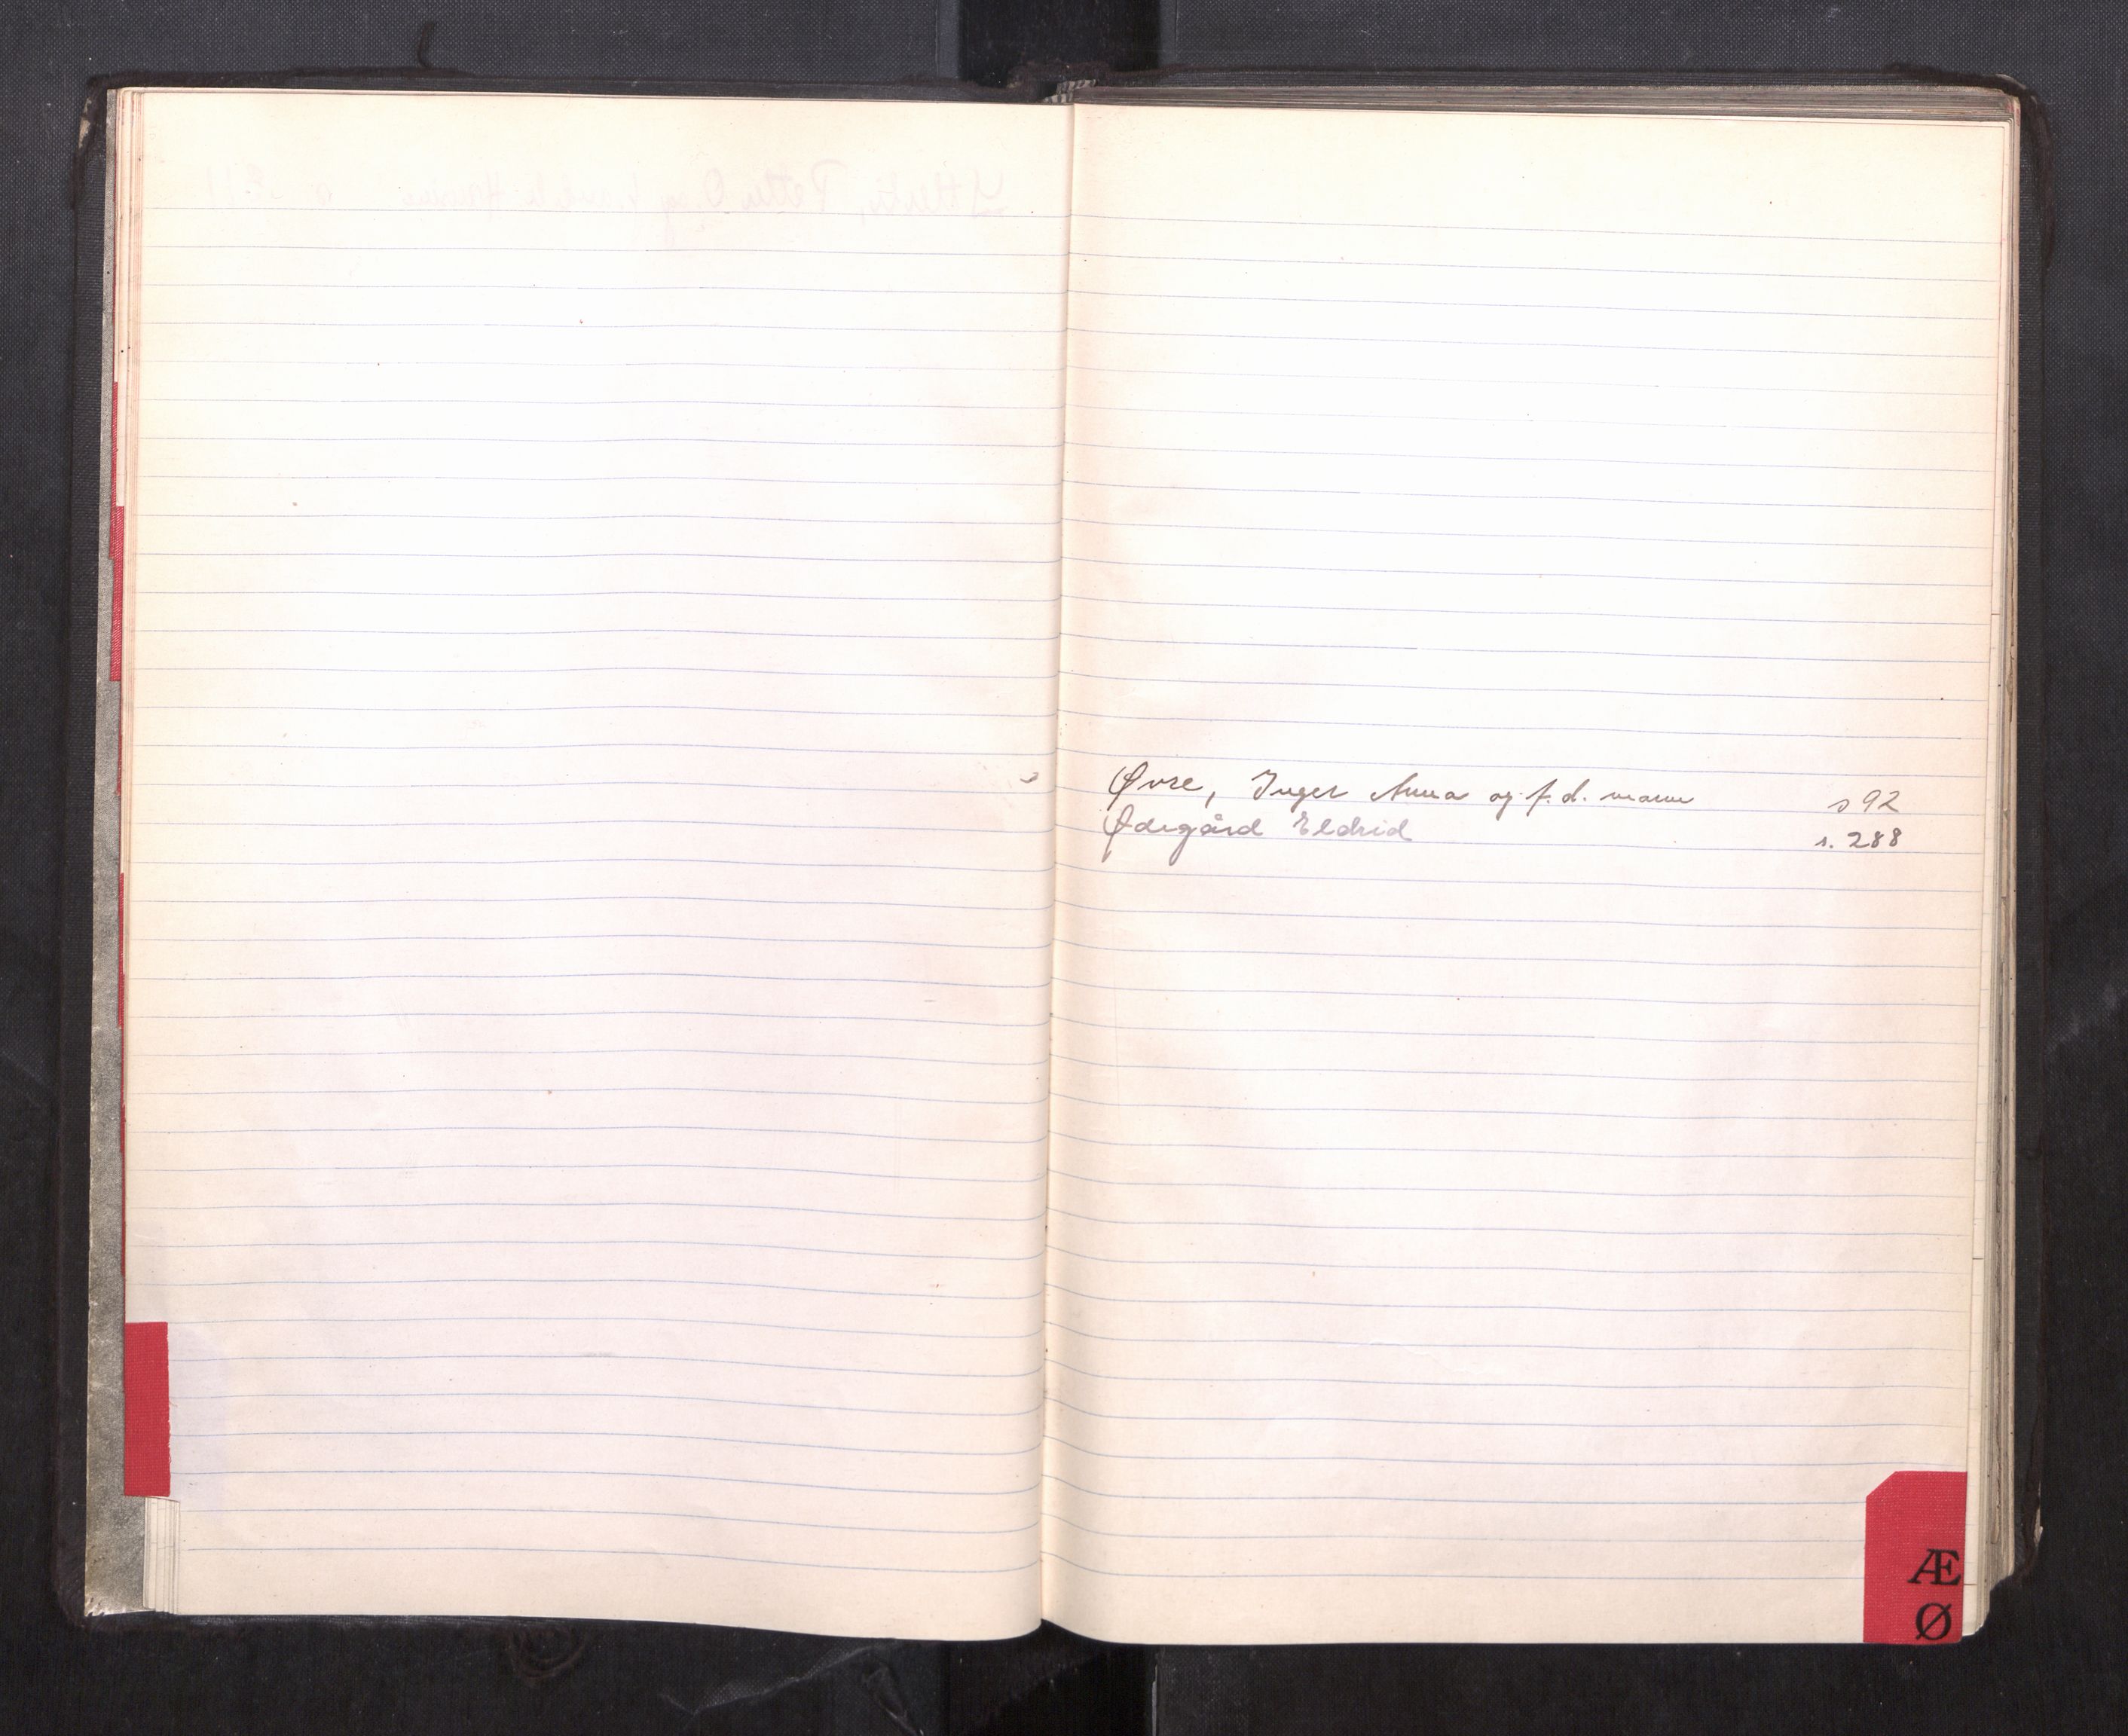 Øvre, Inger Anna og f. d. mann s 92
Ødegård Eldrid s. 288
Æ
Ø